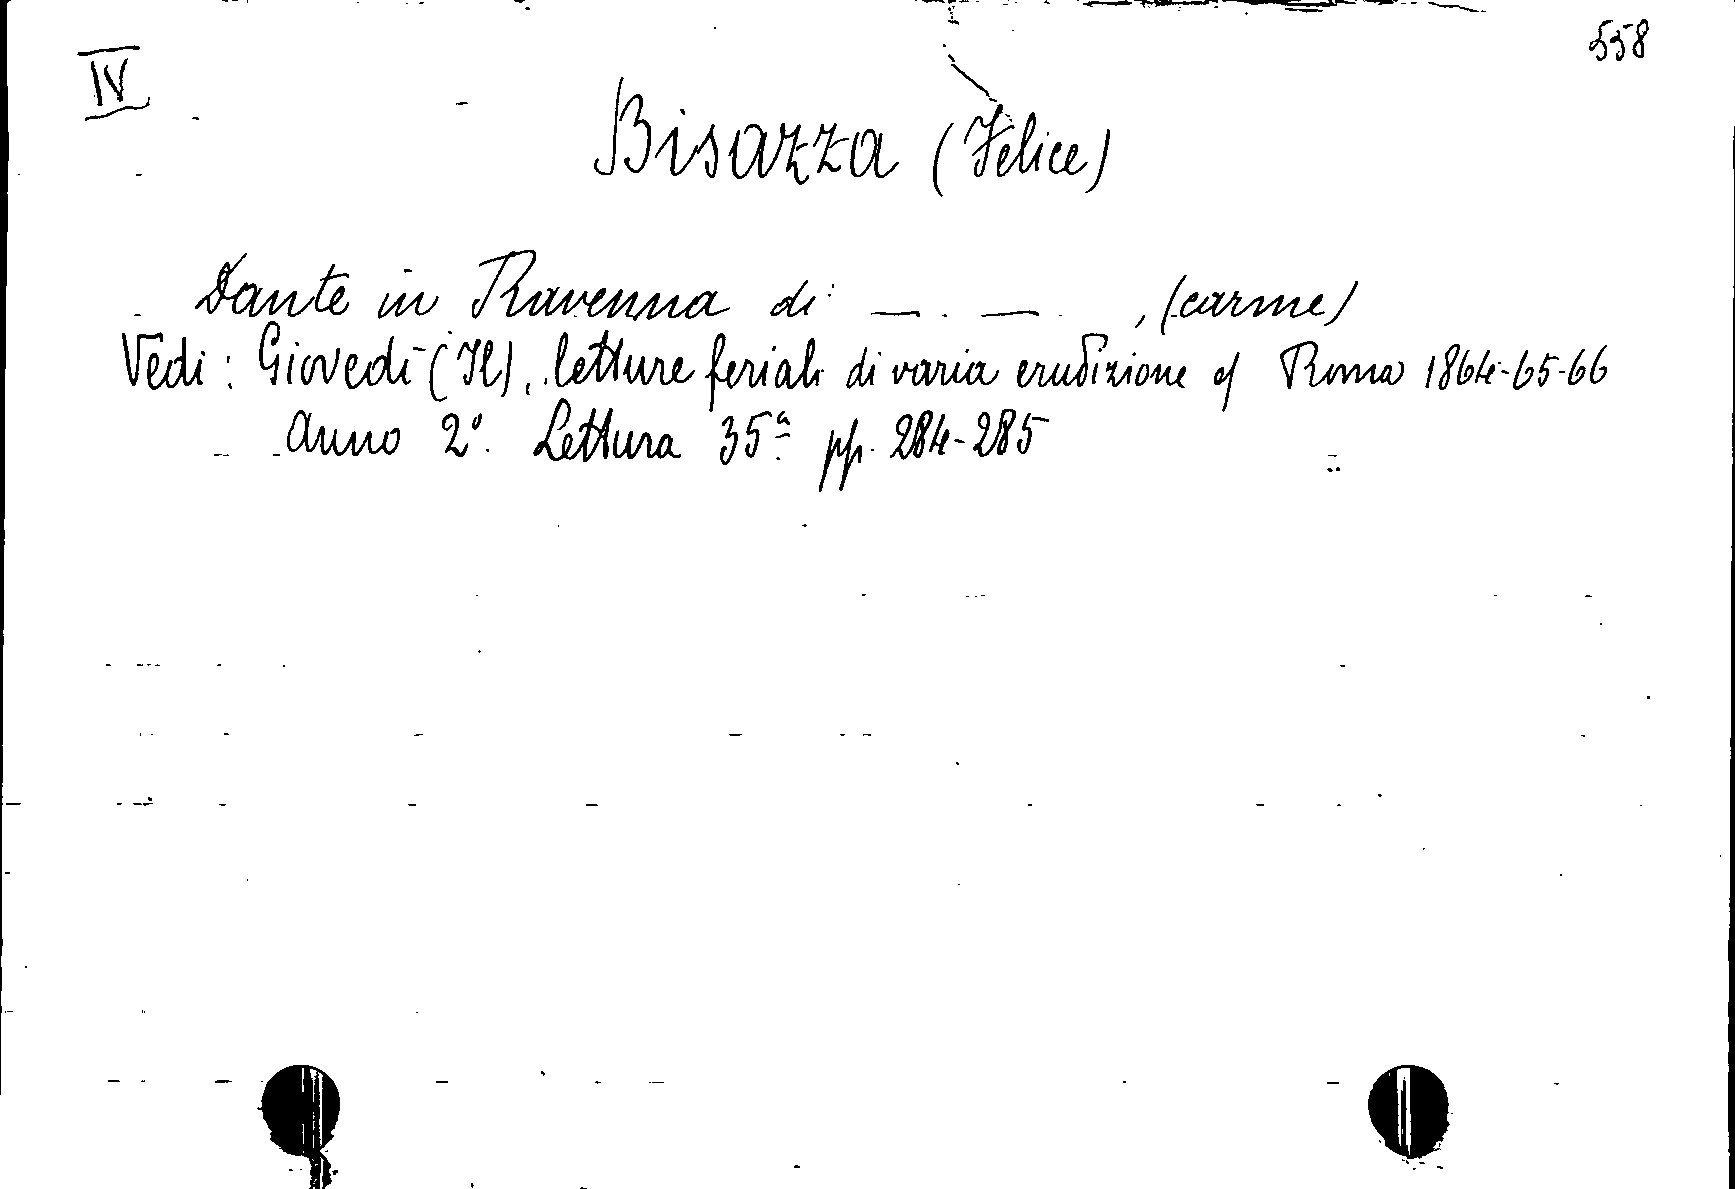 IV
558
Bisazza (Felice)
Dante in Ravenna di — . — . , (carme)
Vedi : Giovedì (Il), letture feriali di varia erudizione Roma 1864-65-66
Anno 2º. Lettura 35ª pp. 284-285